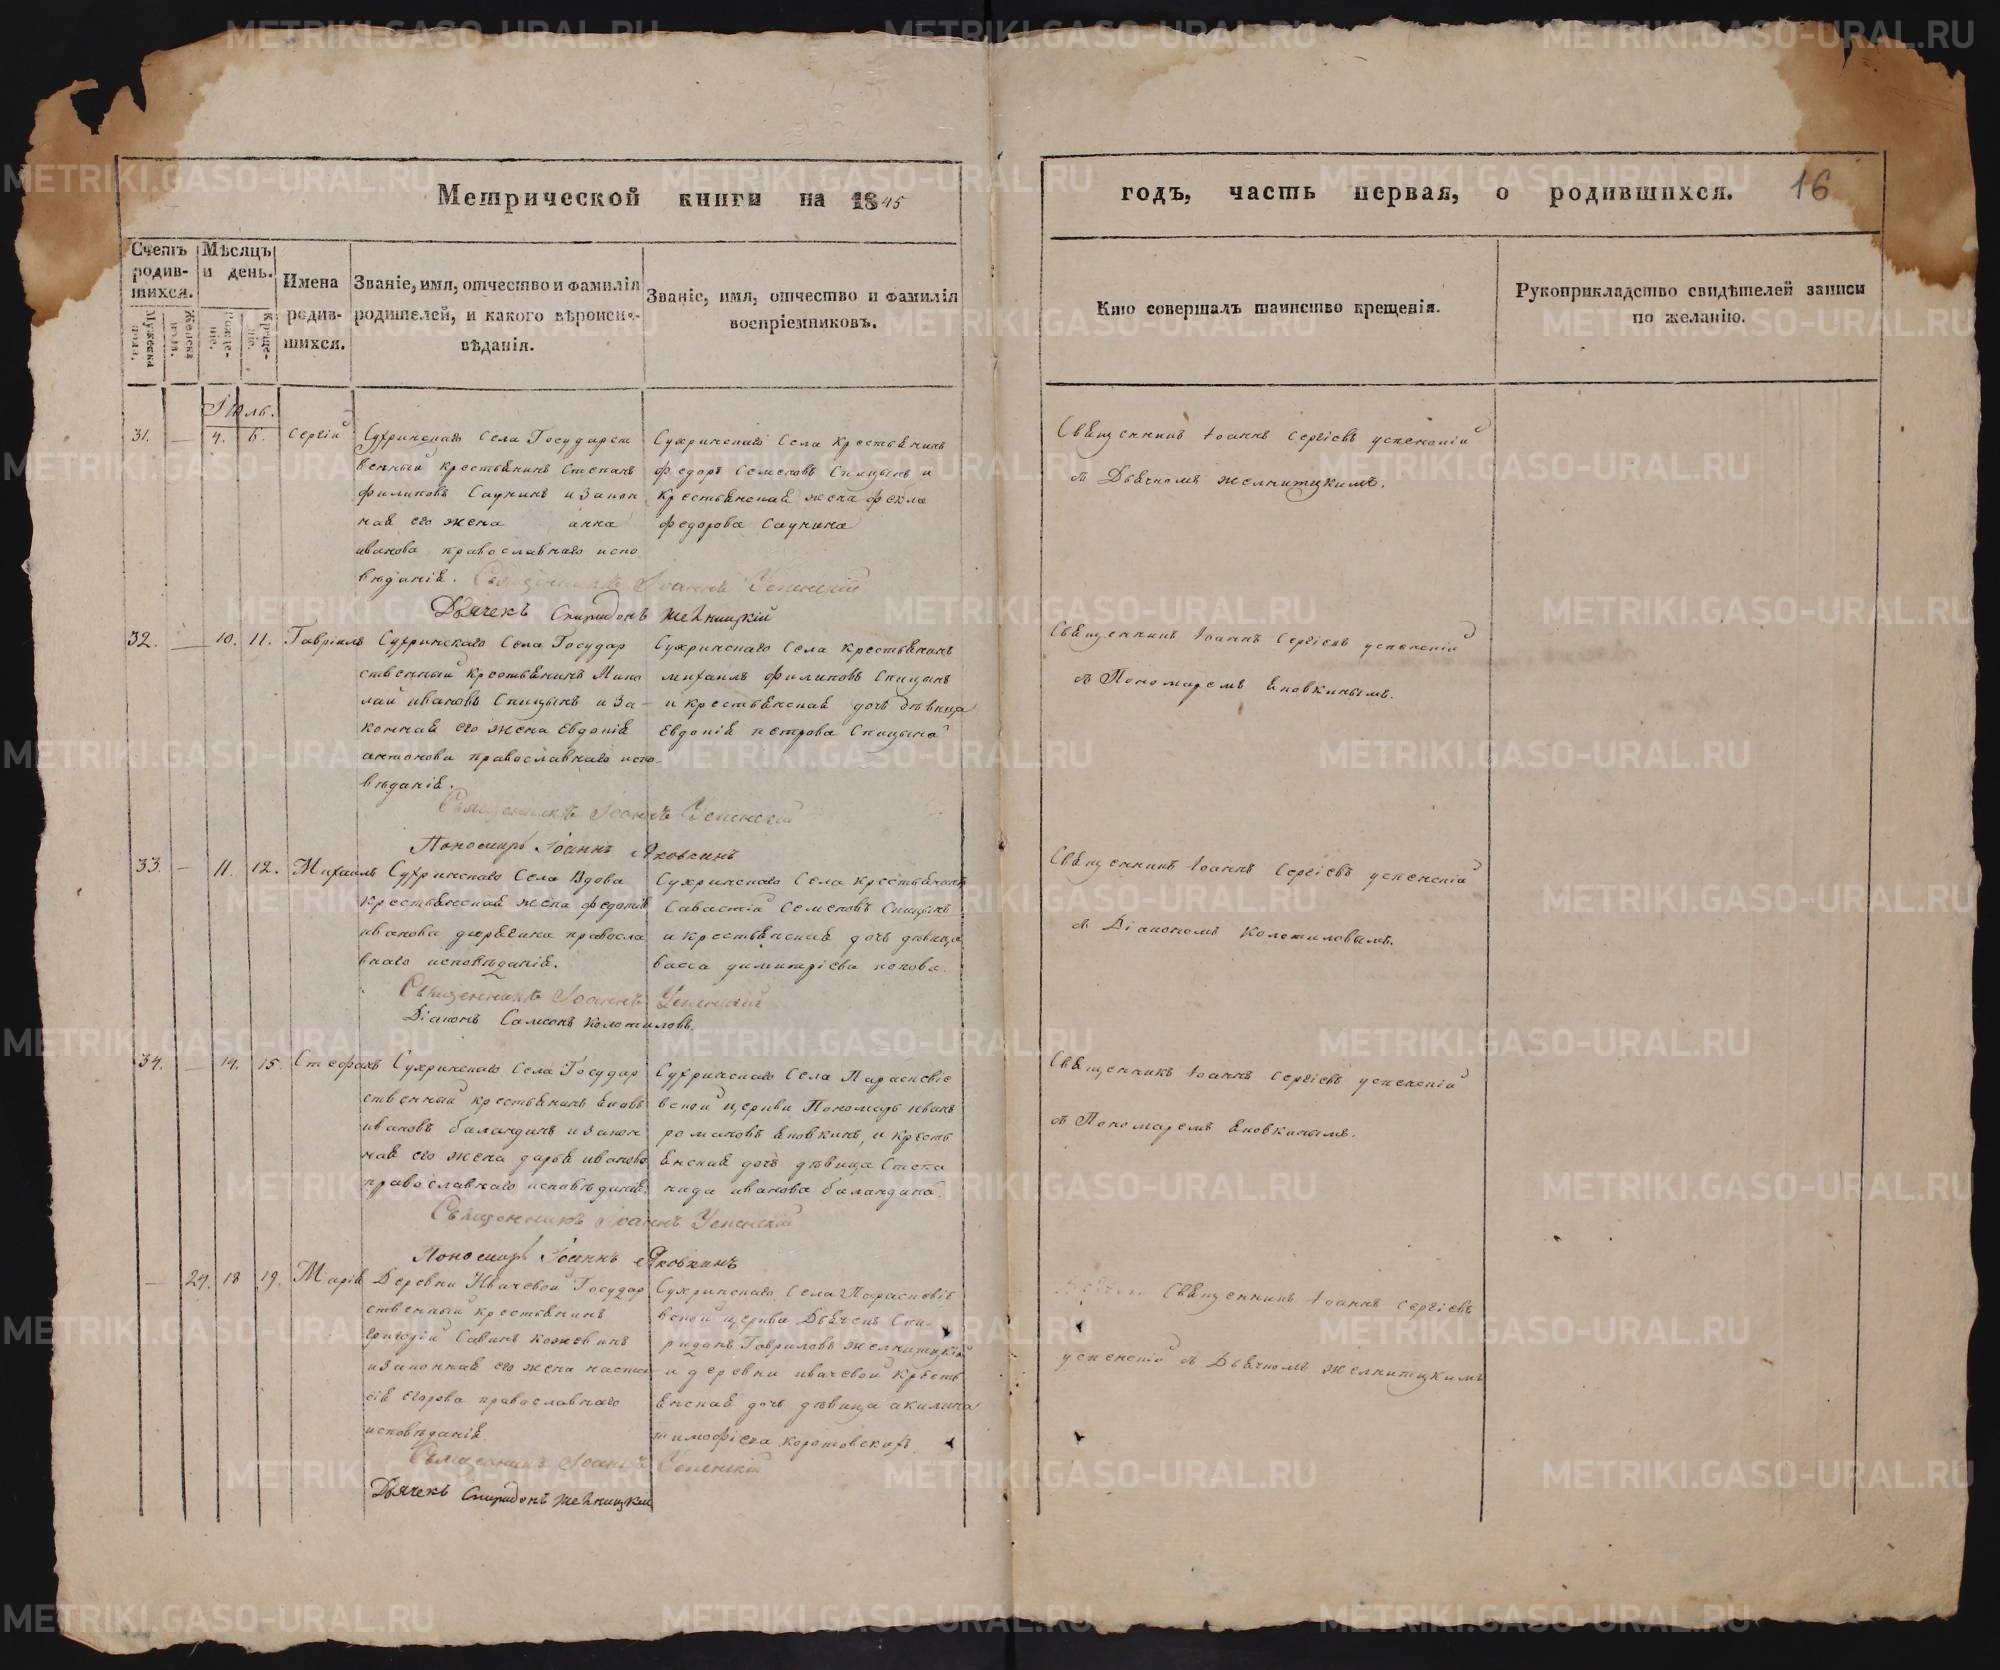 Метрической книги на 1845
годъ, часть первая, о родившихся. 16
Счетъ родив-шихся.
Мужеска пола.
Женска пола.
Мѣсяцъ и день.
Рожде-нія.
Креще-нія.
Имена родив-шихся.
Званіе, имя, отчество и фамилія родителей, и какого вѣроиспо-вѣданія.
Званіе, имя, отчество и фамилія воспріемниковъ.
Кто совершалъ таинство крещенія.
Рукоприкладство свидѣтелей записи по желанію.
Іюль.
31. — 4. 6. Сергій
Сухринскаго Села Государст
венный крестьянинъ Степанъ
филиповъ Саунинъ и закон
ная его жена анна
иванова православнаго испо
вѣданія.
Сухринскаго Села крестьянинъ
федоръ Семеновъ Спицынъ и
крестьянская жена фекла
федорова Саунина
Священникъ Іоаннъ Сергіевъ успенскій
съ Дьячкомъ желнитцкимъ.
Священникъ Іоаннъ Успенскій
Дьячекъ Спиридонъ Желницкій
32. — 10. 11. Гавріилъ
Сухринскаго Села Государ
ственный крестьянинъ Нико
лай ивановъ Спицынъ и за-
конная его жена Евдокія
антонова православнаго испо-
вѣданія.
Сухринскаго Села крестьянинъ
михаилъ филиповъ Спицынъ
и крестьянская дочь дѣвица
Евдокія петрова Спицына
Священникъ Іоаннъ Сергіевъ успенскій
съ Пономаремъ Яковкинымъ.
Священникъ Іоаннъ Успенскій
Пономарь Іоаннъ Яковкинъ
33. — 11. 12. Михаилъ
Сухринскаго Села вдова
крестьянская жена федотія
иванова православ
наго исповѣданія.
Сухринскаго Села крестьянинъ
Савастій Семеновъ Спицынъ
и крестьянская дочь дѣвица
васса димитріева попова.
Священникъ Іоаннъ Сергіевъ успенскій
съ Діакономъ Колотиловымъ.
Священникъ Іоаннъ Успенскій
Діаконъ Самсонъ Колотиловъ.
34. — 14. 15. Стефанъ
Сухринскаго Села Государ
ственный крестьянинъ Яковъ
ивановъ баландинъ и закон
ная его жена дарья иванова
православнаго исповѣданія.
Сухринскаго Села Параскевіе
вской церкви Пономарь иванъ
романовъ Яковкинъ, и кресть
янская дочь дѣвица Степа
нида иванова баландина.
Священникъ Іоаннъ Сергіевъ успенскій
съ Пономаремъ Яковкинымъ.
Священникъ Іоаннъ Успенскій
Пономарь Іоаннъ Яковкинъ
— 24. 18 19. Марія
Деревни Ивачевой Государ
ственный крестьянинъ
григорій Савинъ кожевинъ
и законная его жена наста
сія Егорова православнаго
исповѣданія
Сухринскаго Села Параскевіе
вской церкви Дьячекъ Спи-
ридонъ Гавриловъ желнитцкій
и деревни ивачевой кресть
янская дочь дѣвица акилина
тимофіева коротовскихъ.
Священникъ Іоаннъ Сергіевъ
успенскій съ Дьячкомъ желнитцкимъ
Священникъ Іоаннъ Успенскій
Дьячекъ Спиридонъ Желницкій
METRIKI.GASO-URAL.RU